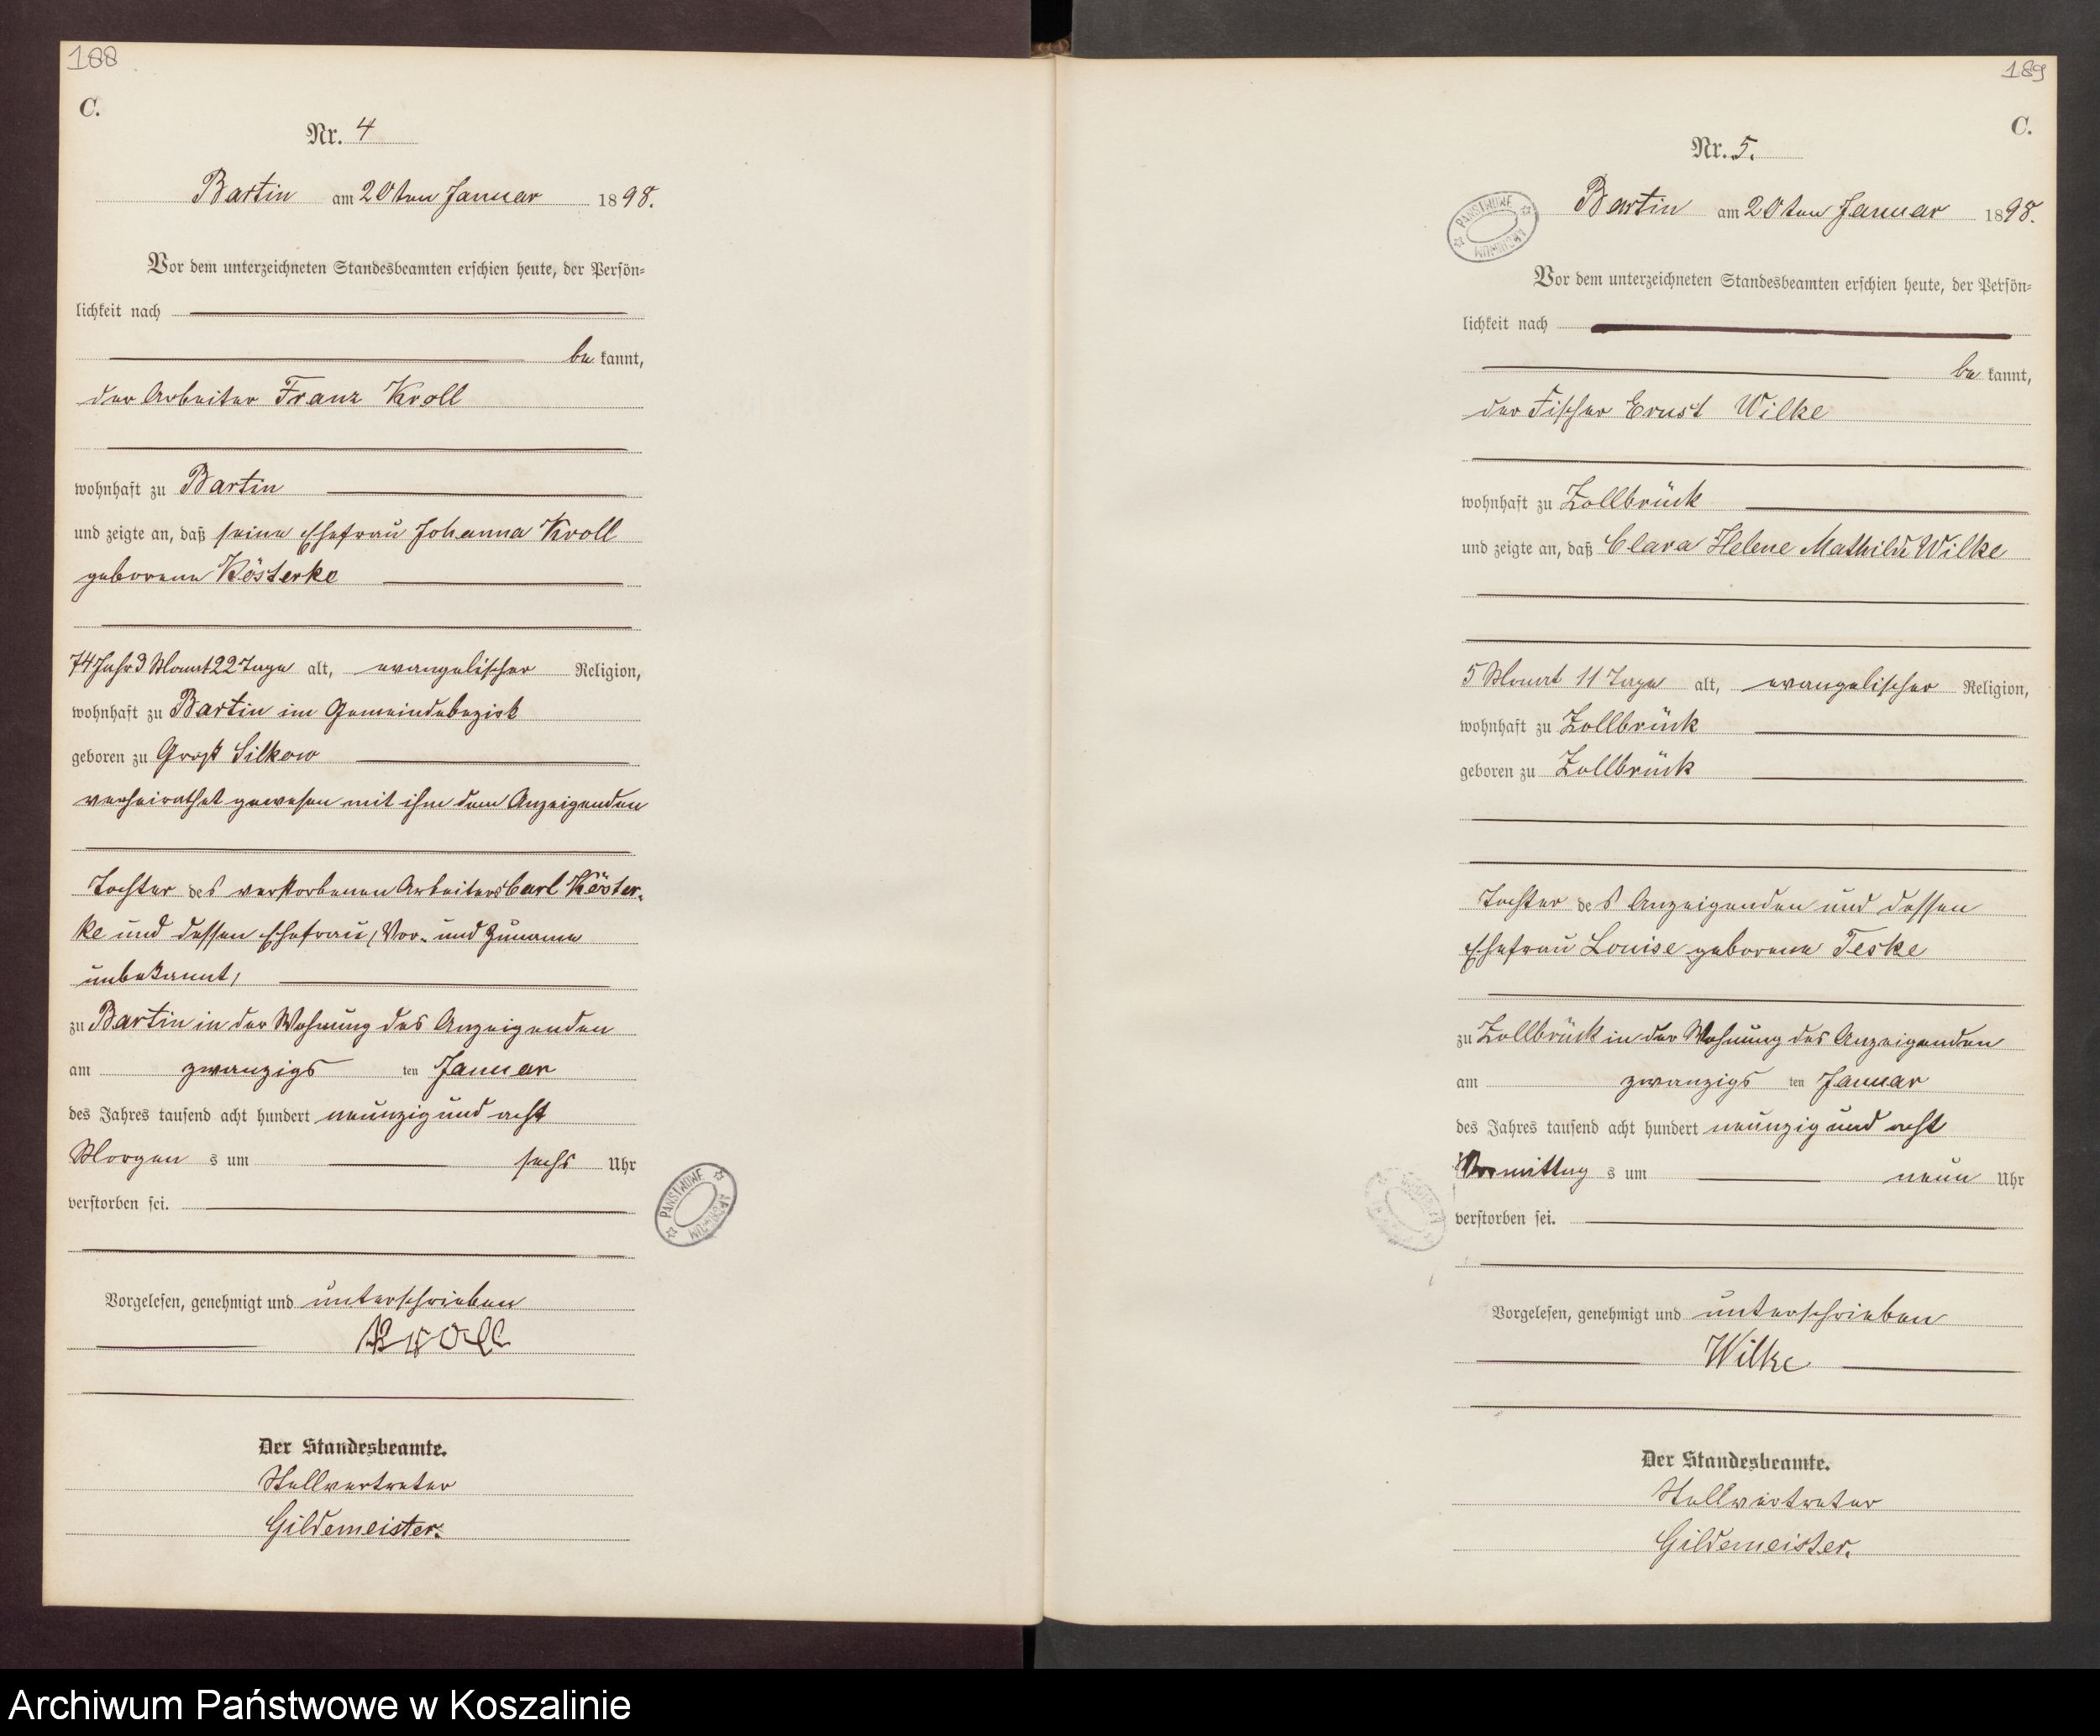 188
C.
Nr. 4
Bartin am 20ten Januar 1898.
Vor dem unterzeichneten Standesbeamten erschien heute, der Persön-
lichkeit nach
be kannt,
der Arbeiter Franz Kroll
wohnhaft zu Bartin
und zeigte an, daß seine Ehefrau Johanna Kroll
geborene Kösterke
74 Jahr 3 Monat 22 Tage alt, evangelischer Religion,
wohnhaft zu Bartin im Gemeindebezirk
geboren zu Groß Silkow
verheirathet gewesen mit ihm dem Anzeigenden
Tochter des verstorbenen Arbeiters Carl Köster-
ke und dessen Ehefrau, Vor- und Zuname
unbekannt,
zu Bartin in der Wohnung des Anzeigenden
am zwanzigs ten Januar
des Jahres tausend acht hundert neunzig und acht
Morgen s um sechs Uhr
verstorben sei.
Vorgelesen, genehmigt und unterschrieben
Kroll
Der Standesbeamte.
Stellvertreter
Gildemeister.
PAŃSTWOWE ARCHIWUM
189
C.
Nr. 5.
PAŃSTWOWE ARCHIWUM
Bartin am 20ten Januar 1898.
Vor dem unterzeichneten Standesbeamten erschien heute, der Persön-
lichkeit nach
be kannt,
der Fischer Ernst Wilke
wohnhaft zu Zollbrück
und zeigte an, daß Clara Helene Mathilde Wilke
5 Monat 11 Tage alt, evangelischer Religion,
wohnhaft zu Zollbrück
geboren zu Zollbrück
Tochter des Anzeigenden und dessen
Ehefrau Louise geborene Teske
zu Zollbrück in der Wohnung des Anzeigenden
am zwanzigs ten Januar
des Jahres tausend acht hundert neunzig und acht
Vormittag s um neun Uhr
verstorben sei.
Vorgelesen, genehmigt und unterschrieben
Wilke
Der Standesbeamte.
Stellvertreter
Gildemeister.
Archiwum Państwowe w Koszalinie